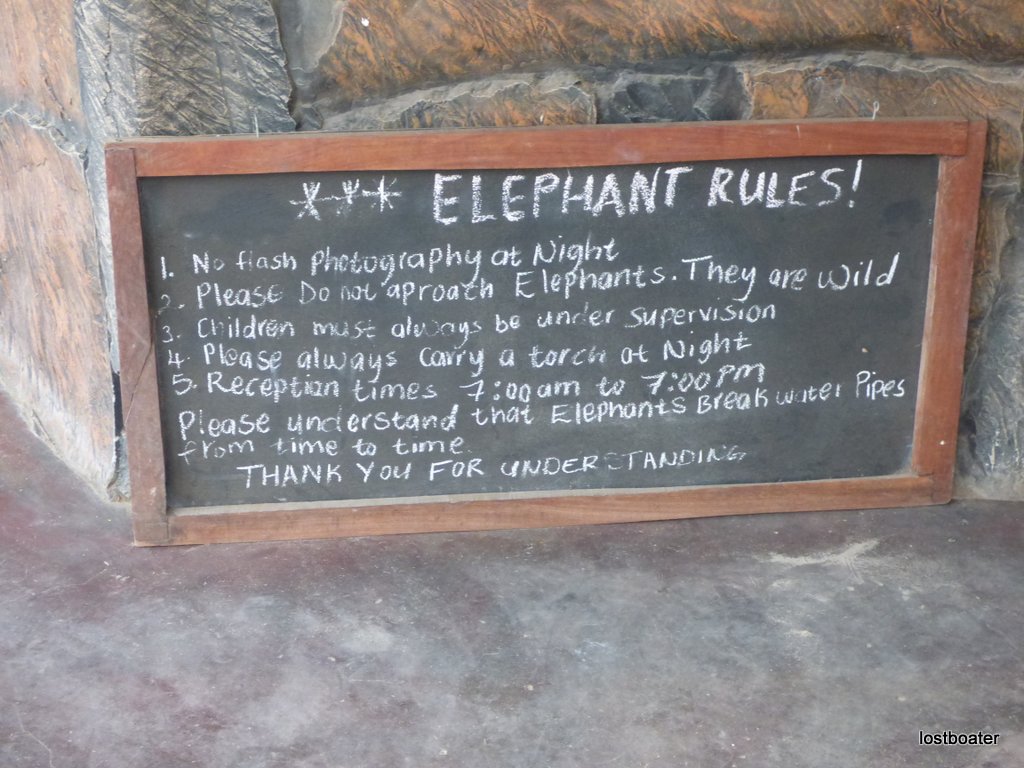 *** ELEPHANT RULES!
1. No flash Photography at Night
2. Please Do not aproach Elephants. They are Wild
3. Children must always be under supervision
4. Please always carry a torch at Night
5. Reception times 7:00am to 7:00PM
Please understand that Elephants Break water Pipes
from time to time.
THANK YOU FOR UNDERSTANDING
lostboater